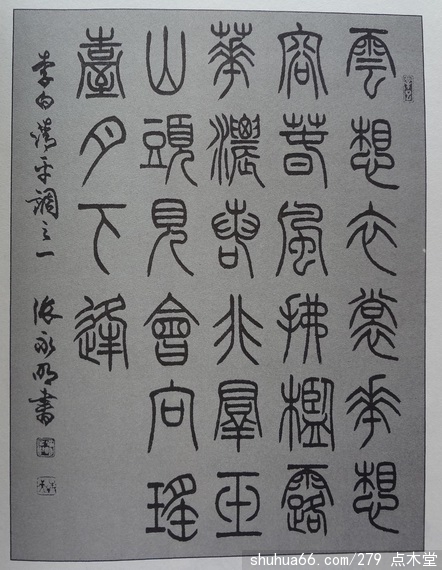 雲想衣裳華想
容春風拂檻露
華濃若非羣玉
山頭見會向瑤
臺月下逢
李白清平調之一
永明書
shuhua66.com/279 点木堂